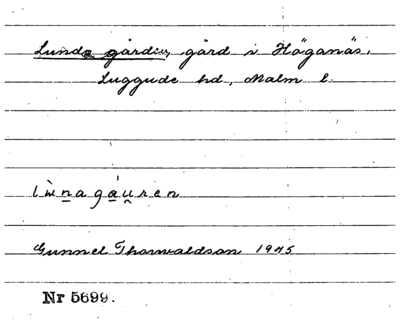 Lunda gården, gård i Höganäs,
Luggude hd, Malm l.
Gunnel Thorwaldson 1945
Nr 5699.